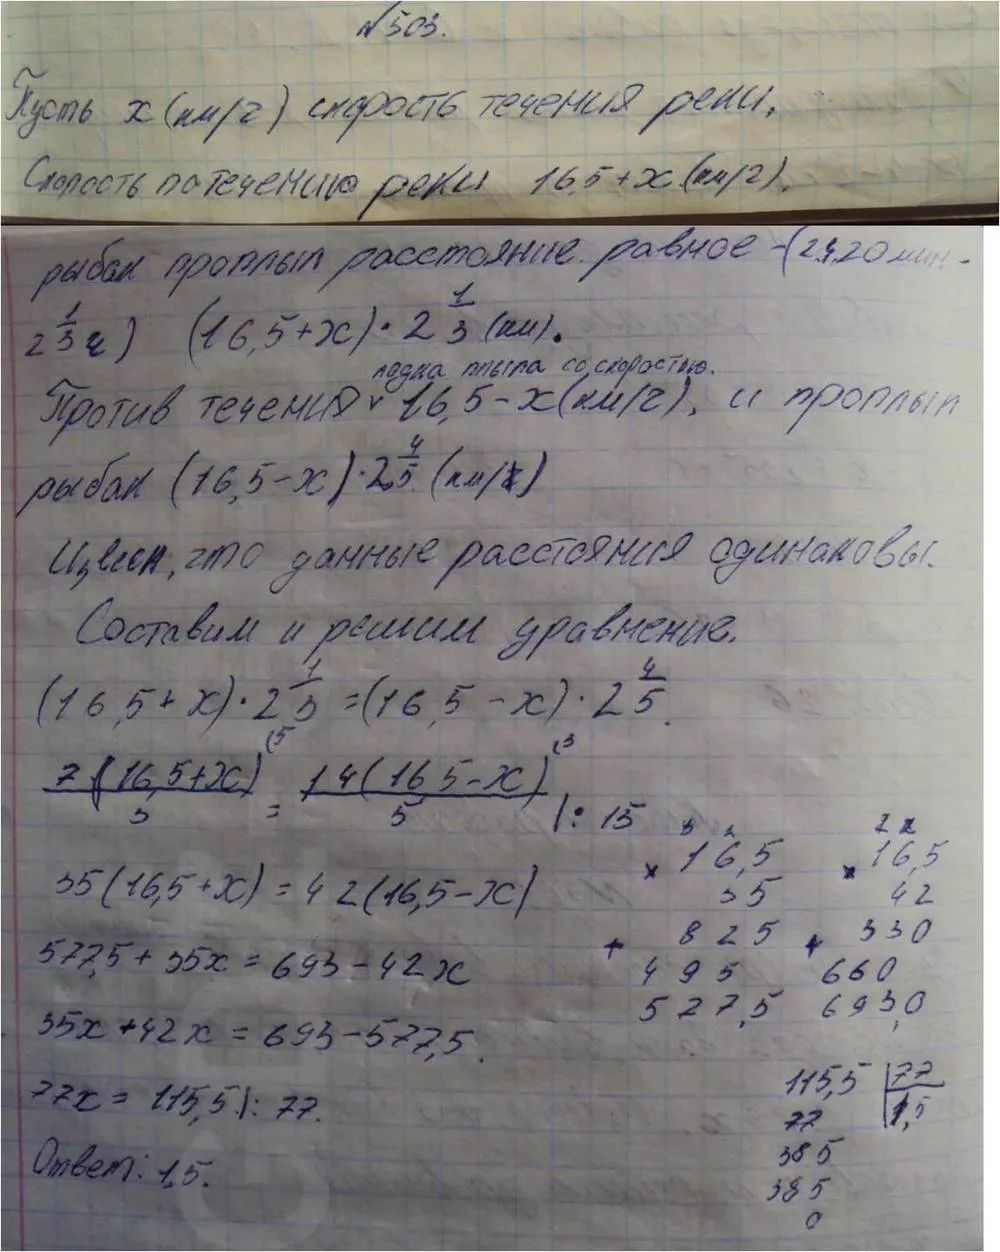 №503.
Пусть x (км/ч) скорость течения реки,
Скорость по течению реки 16,5+x (км/ч).
рыбак проплыл расстояние равное - (2ч,20мин-
2 1/3 ч) (16,5+x)·2 1/3 (км).
лодка плыла со скоростью.
Против течения v 16,5-x (км/ч), и проплыл
рыбак (16,5-x)·2 4/5 (км/)
что данные расстояния одинаковы.
Составим и решим уравнение.
(16,5+x)·2 1/3 = (16,5-x)·2 4/5.
7(16,5+x)/3 (5 = 14(16,5-x)/5 (3 |: 15
35(16,5+x) = 42(16,5-x)
577,5+35x = 693-42x
35x+42x = 693-577,5.
77x = 115,5 |: 77.
Ответ: 1,5.
3 2
× 16,5
35
+ 825
495
527,5
× 16,5
42
+ 330
660
693,0
115,5 | 77
77 1,5
385
385
0